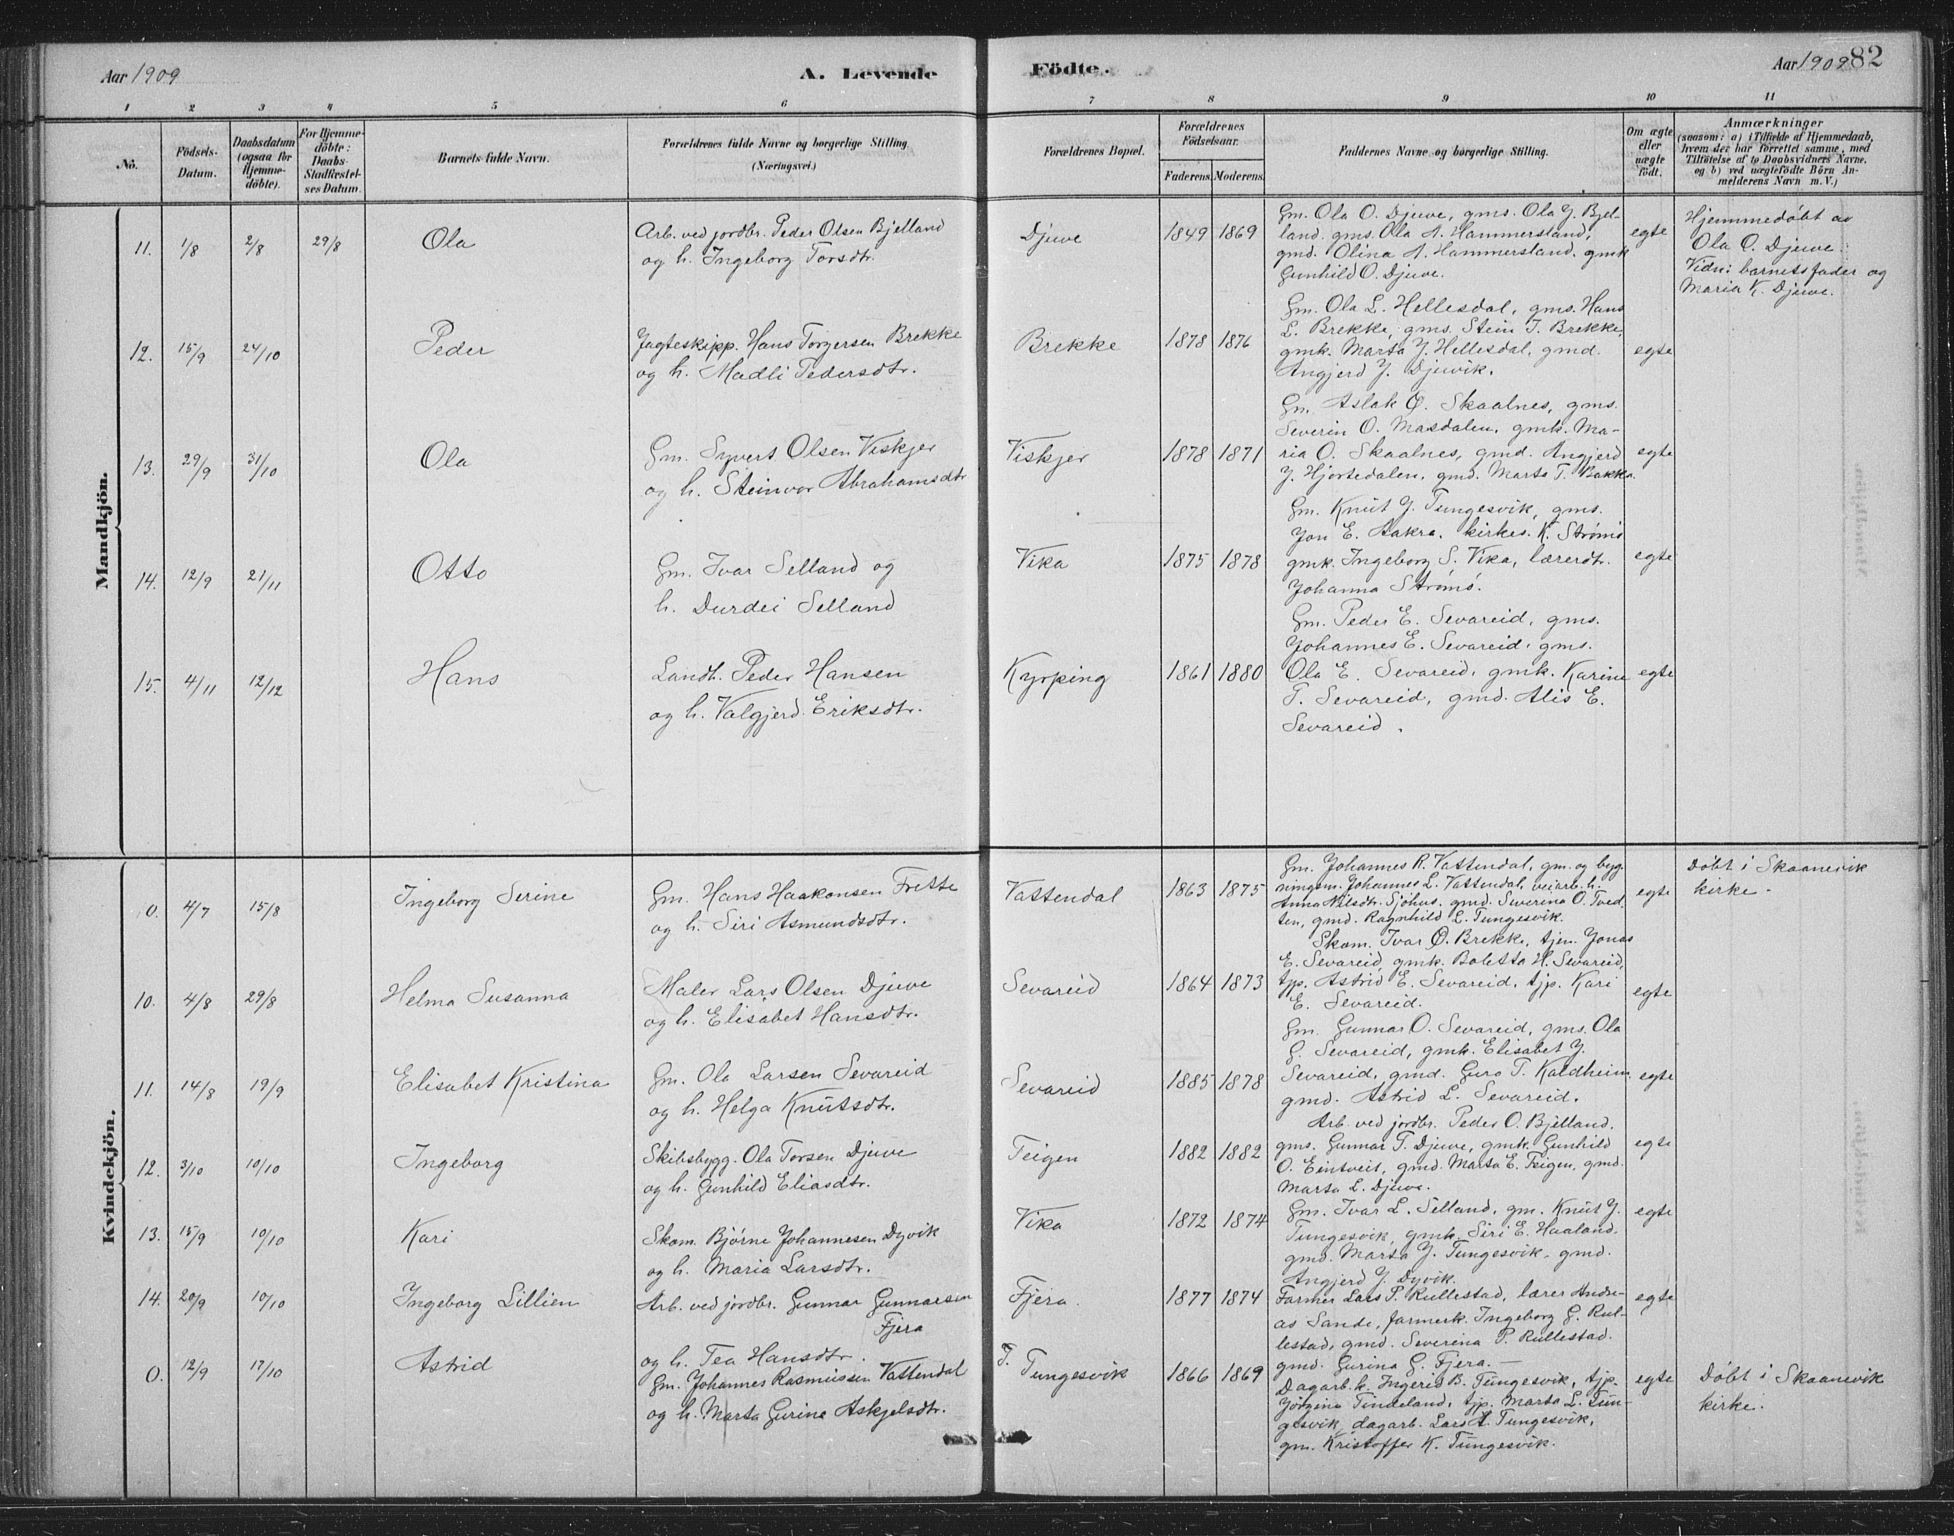 Aar 1909
A. Levende
Födte.
Aar 1909 82
1 2 3 4 5 6 7 8 9 10 11
No.
Födsels-
Datum.
Daabsdatum
(ogsaa for
Hjemme-
döbte).
For Hjemme-
döbte:
Daabs-
Stadfæstel-
ses Datum.
Barnets fulde Navn.
Forældrenes fulde Navne og borgerlige Stilling
(Næringsvei.)
Forældrenes Bopæl.
Forældrenes
Födselsaar.
Faderens. Moderens.
Faddernes Navne og borgerlige Stilling.
Om ægte
eller
uægte
födt.
Anmærkninger
(saasom: a) i Tilfælde af Hjemmedaab,
hvem der har forrettet samme, med
Tilföielse af to Daabsvidners Navne,
og b) ved uægtefödte Börn An-
melderens Navn m. V.)
Mandkjön.
11. 1/8 2/8 29/8 Ola
Arb. ved jordbr. Peder Olsen Bjelland
og h. Ingeborg Torsdtr.
Djuve 1849 1869
Gm. Ola O. Djuve, gms. Ola J. Bjel-
land. gms. Ola A. Hammersland,
gmd. Olina A. Hammersland. gmk
Gunhild O. Djuve.
egte
Hjemmedøbt av
Ola O. Djuve.
Vidn: barnets fader og
Maria K. Djuve.
12. 15/9 24/10 Peder
Jagteskipp. Hans Torgersen Brekke
og h. Madli Pedersdtr.
Brekke 1878 1876
Gm. Ola L. Hellesdal, gms. Hans
L. Brekke, gms. Stein T. Brekke,
gmk. Marta J. Hellesdal, gmd.
Angjerd J. Djuvik.
egte
13. 29/9 31/10 Ola
Gm. Syvert Olsen Viskjer
og h. Steinvor Abrahamsdtr
Viskjer 1878 1871
Gm. Aslak O. Skaalnes, gms.
Severin O. Masdalen, gmk. Ma-
ria O. Skaalnes, gmd. Angjerd
J. Hjortedalen, gmd. Marta T. Bakka.
egte
14. 12/9 21/11 Otto
Gm. Ivar Selland og
h. Durdei Selland
Vika 1875 1878
Gm. Knut J. Tungesvik, gms.
Jon E. Aakra, kirkes. K. Strømø
gmk. Ingeborg S. Vika, lærerdtr.
Johanna Strømø.
egte
15. 4/11 12/12 Hans
Landh. Peder Hansen
og h. Valgjerd Eriksdtr.
Kyrping 1861 1880
Gm. Peder E. Sevareid, gms.
Johannes E. Sevareid, gms.
Ola E. Sevareid, gmk. Karine
T. Sevareid, gmd. Alis E.
Sevareid.
egte
Kvindekjön.
0. 4/7 15/8 Ingeborg Serine
Gm. Hans Haakonsen Frette
og h. Siri Asmundsdtr.
Vattendal 1863 1875
Gm. Johannes R. Vattendal, gm. og byg-
ningsm. Johannes L. Vattendal, veiarb. h.
Anna Nilsdtr. Sjøhus. gmd. Severina O. Tved-
ten, gmd. Ragnhild L. Tungesvik.
egte
Døbt i Skaanevik
kirke.
10. 4/8 29/8 Helma Susanna
Maler Lars Olsen Djuve
og h. Elisabet Hansdtr.
Sevareid 1864 1873
Skom. Ivar O. Brekke, tjen. Jonas
E. Sevareid, gmk. Boletta H. Sevareid,
tjp. Astrid E. Sevareid, tjp. Kari
E. Sevareid.
egte
11. 14/8 19/9 Elisabet Kristina
Gm. Ola Larsen Sevareid
og h. Helga Knutsdtr.
Sevareid 1885 1878
Gm. Gunnar O. Sevareid, gms. Ola
G. Sevareid, gmk. Elisabet J.
Sevareid, gmd. Guro T. Kaldheim,
gmd. Astrid L. Sevareid.
egte
12. 3/10 10/10 Ingeborg
Skibsbygg. Ola Torsen Djuve
og h. Gunhild Eliasdtr.
Teigen 1882 1882
Arb. ved jordbr. Peder O. Bjelland,
gms. Gunnar T. Djuve, gmk. Gunhild
O. Eintveit, gmd. Marta E. Teigen, gmd.
Marta L. Djuve.
egte
13. 15/9 10/10 Kari
Skom. Bjørne Johannesen Dyvik
og h. Maria Larsdtr.
Vika 1872 1874
Gm. Ivar L. Selland, gm. Knut J.
Tungesvik, gmk. Siri E. Haaland,
gmd. Marta J. Tungesvik, gmd.
Angjerd J. Dyvik.
egte
14. 20/9 10/10 Ingeborg Lillien
Arb. ved jordbr. Gunnar Gunnarsen
Fjera
og h. Tea Hansdtr.
Fjera. 1877 1874
Farmer Lars P. Rullestad, lærer Andre-
as Sande, farmerk. Ingeborg G. Rul-
lestad, gmd. Severina P. Rullestad.
gmd. Gurina G. Fjera.
egte
0. 12/9 17/10 Astrid
Gm. Johannes Rasmussen Vattendal
og h. Marta Gurine Askjelsdtr.
T. Tungesvik 1866 1869
Dagarb. h. Ingerid B. Tungesvik, tjp.
Jørgina Tindeland, tjp. Marta L. Tun-
gesvik, dagarb. Lars A. Tungesvik,
gm. Kristoffer K. Tungesvik.
egte
Døbt i Skaanevik
kirke.